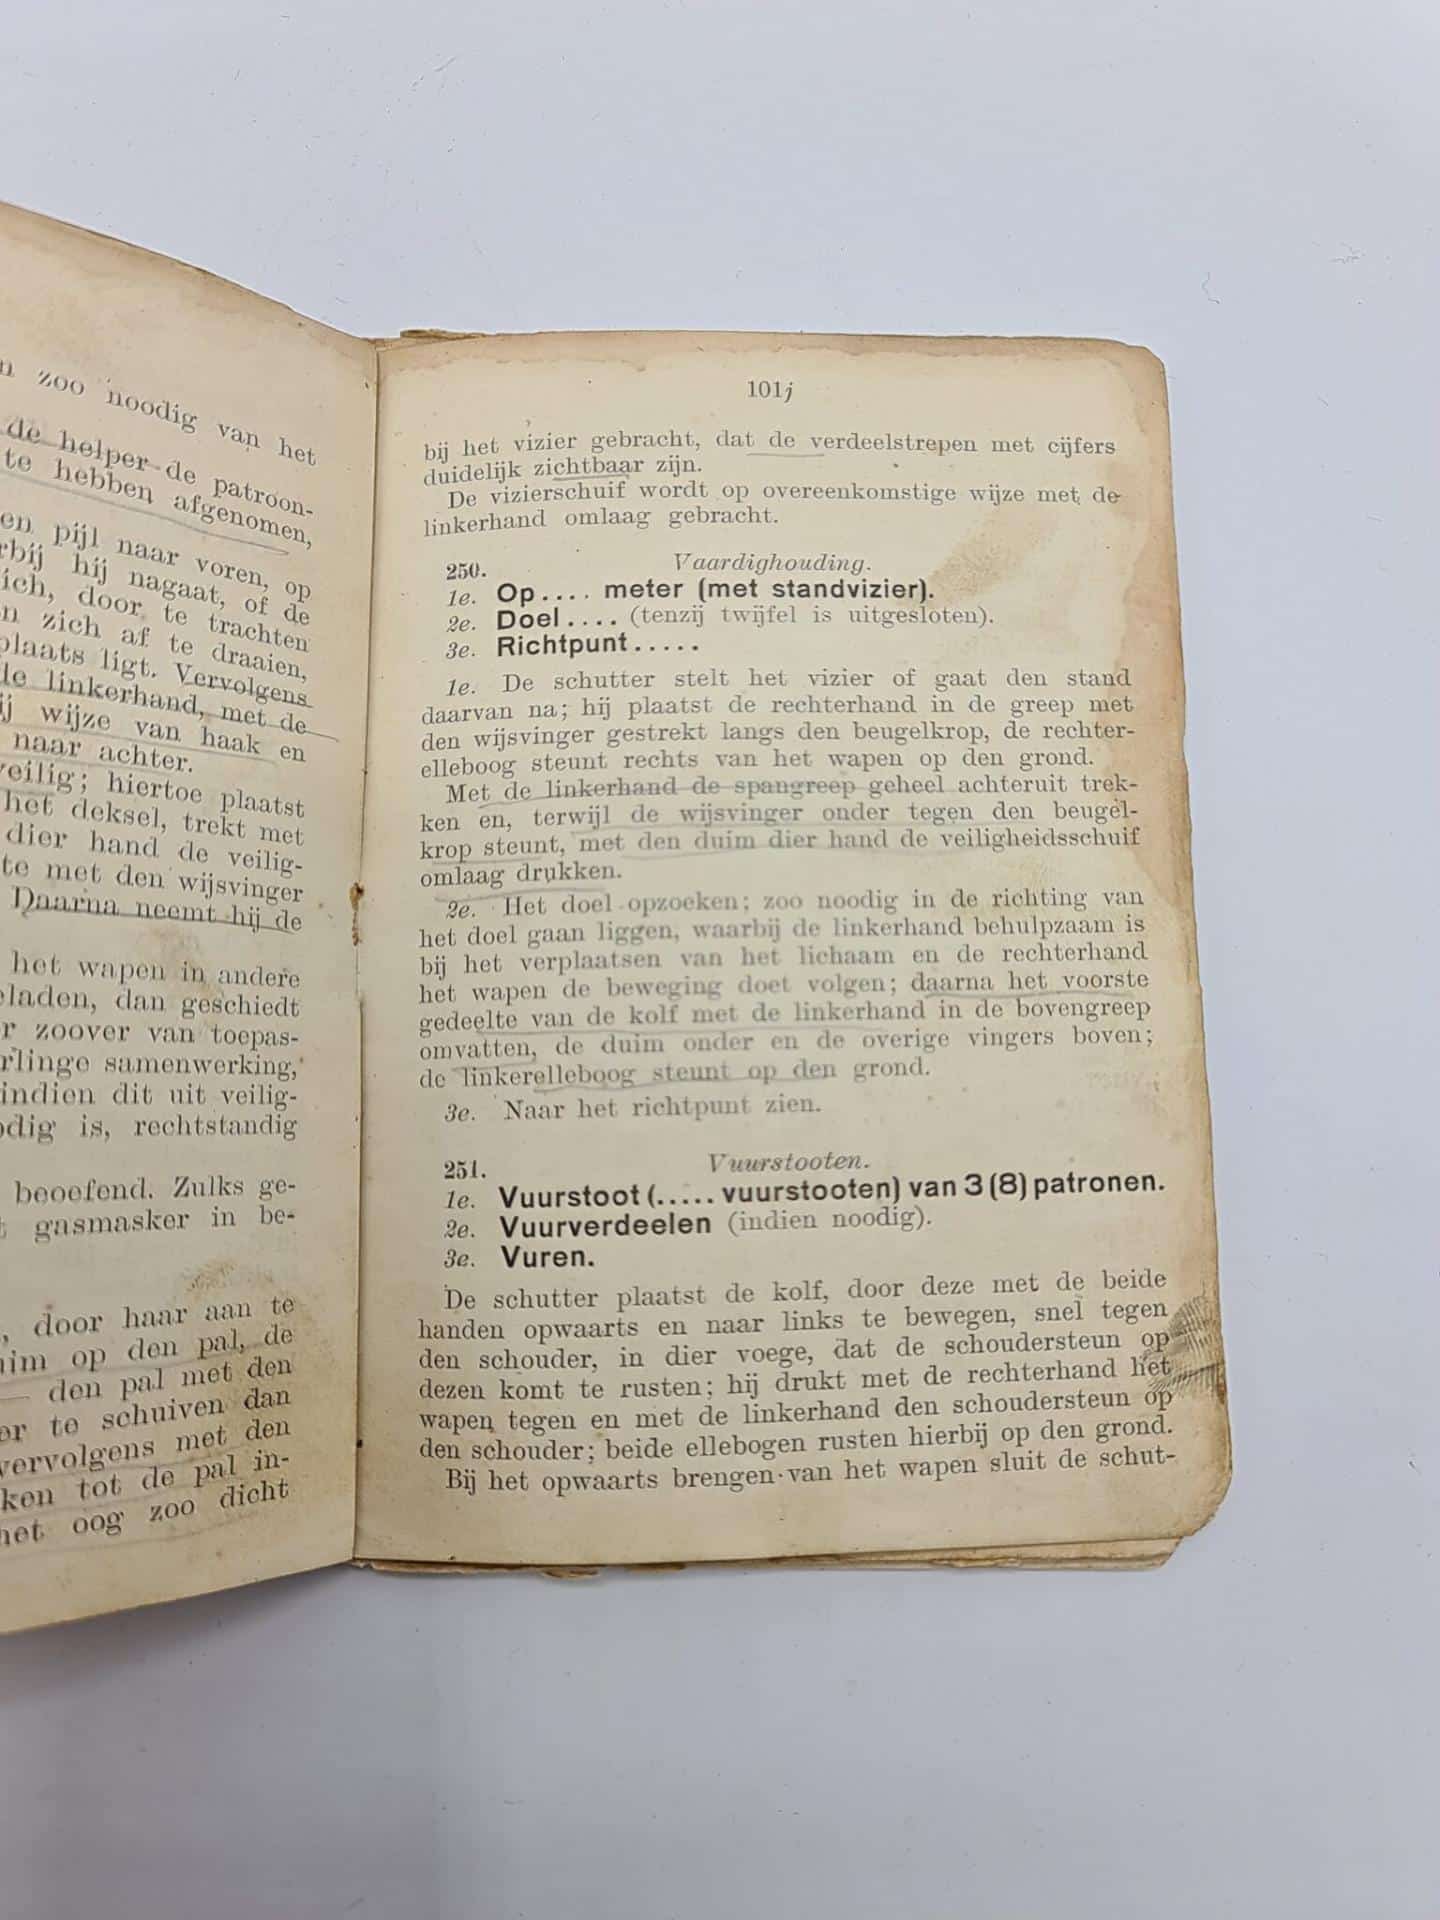 zoo noodig van het
de helper de patroon-
te hebben afgenomen,
pijl naar voren, op
hij nagaat, of de
door te trachten
zich af te draaien,
plaats ligt. Vervolgens
linkerhand, met de
wijze van haak en
naar achter.
veilig; hiertoe plaatst
het deksel, trekt met
dier hand de veilig-
met den wijsvinger
Daarna neemt hij de
het wapen in andere
dan geschiedt
zoover van toepas-
samenwerking,
indien dit uit veilig-
is, rechtstandig
beoefend. Zulks ge-
gasmasker in be-
door haar aan te
op den pal, de
— den pal met den
te schuiven dan
vervolgens met den
tot de pal in-
het oog zoo dicht
101j
bij het vizier gebracht, dat de verdeelstrepen met cijfers
duidelijk zichtbaar zijn.
De vizierschuif wordt op overeenkomstige wijze met de
linkerhand omlaag gebracht.
250. Vaardighouding.
1e. Op.... meter (met standvizier).
2e. Doel.... (tenzij twijfel is uitgesloten).
3e. Richtpunt.....
1e. De schutter stelt het vizier of gaat den stand
daarvan na; hij plaatst de rechterhand in de greep met
den wijsvinger gestrekt langs den beugelkrop, de rechter-
elleboog steunt rechts van het wapen op den grond.
Met de linkerhand de spangreep geheel achteruit trek-
ken en, terwijl de wijsvinger onder tegen den beugel-
krop steunt, met den duim dier hand de veiligheidsschuif
omlaag drukken.
2e. Het doel opzoeken; zoo noodig in de richting van
het doel gaan liggen, waarbij de linkerhand behulpzaam is
bij het verplaatsen van het lichaam en de rechterhand
het wapen de beweging doet volgen; daarna het voorste
gedeelte van de kolf met de linkerhand in de bovengreep
omvatten, de duim onder en de overige vingers boven;
de linkerelleboog steunt op den grond.
3e. Naar het richtpunt zien.
251. Vuurstooten.
1e. Vuurstoot (..... vuurstooten) van 3 (8) patronen.
2e. Vuurverdeelen (indien noodig).
3e. Vuren.
De schutter plaatst de kolf, door deze met de beide
handen opwaarts en naar links te bewegen, snel tegen
den schouder, in dier voege, dat de schoudersteun op
dezen komt te rusten; hij drukt met de rechterhand het
wapen tegen en met de linkerhand den schoudersteun op
den schouder; beide ellebogen rusten hierbij op den grond.
Bij het opwaarts brengen van het wapen sluit de schut-